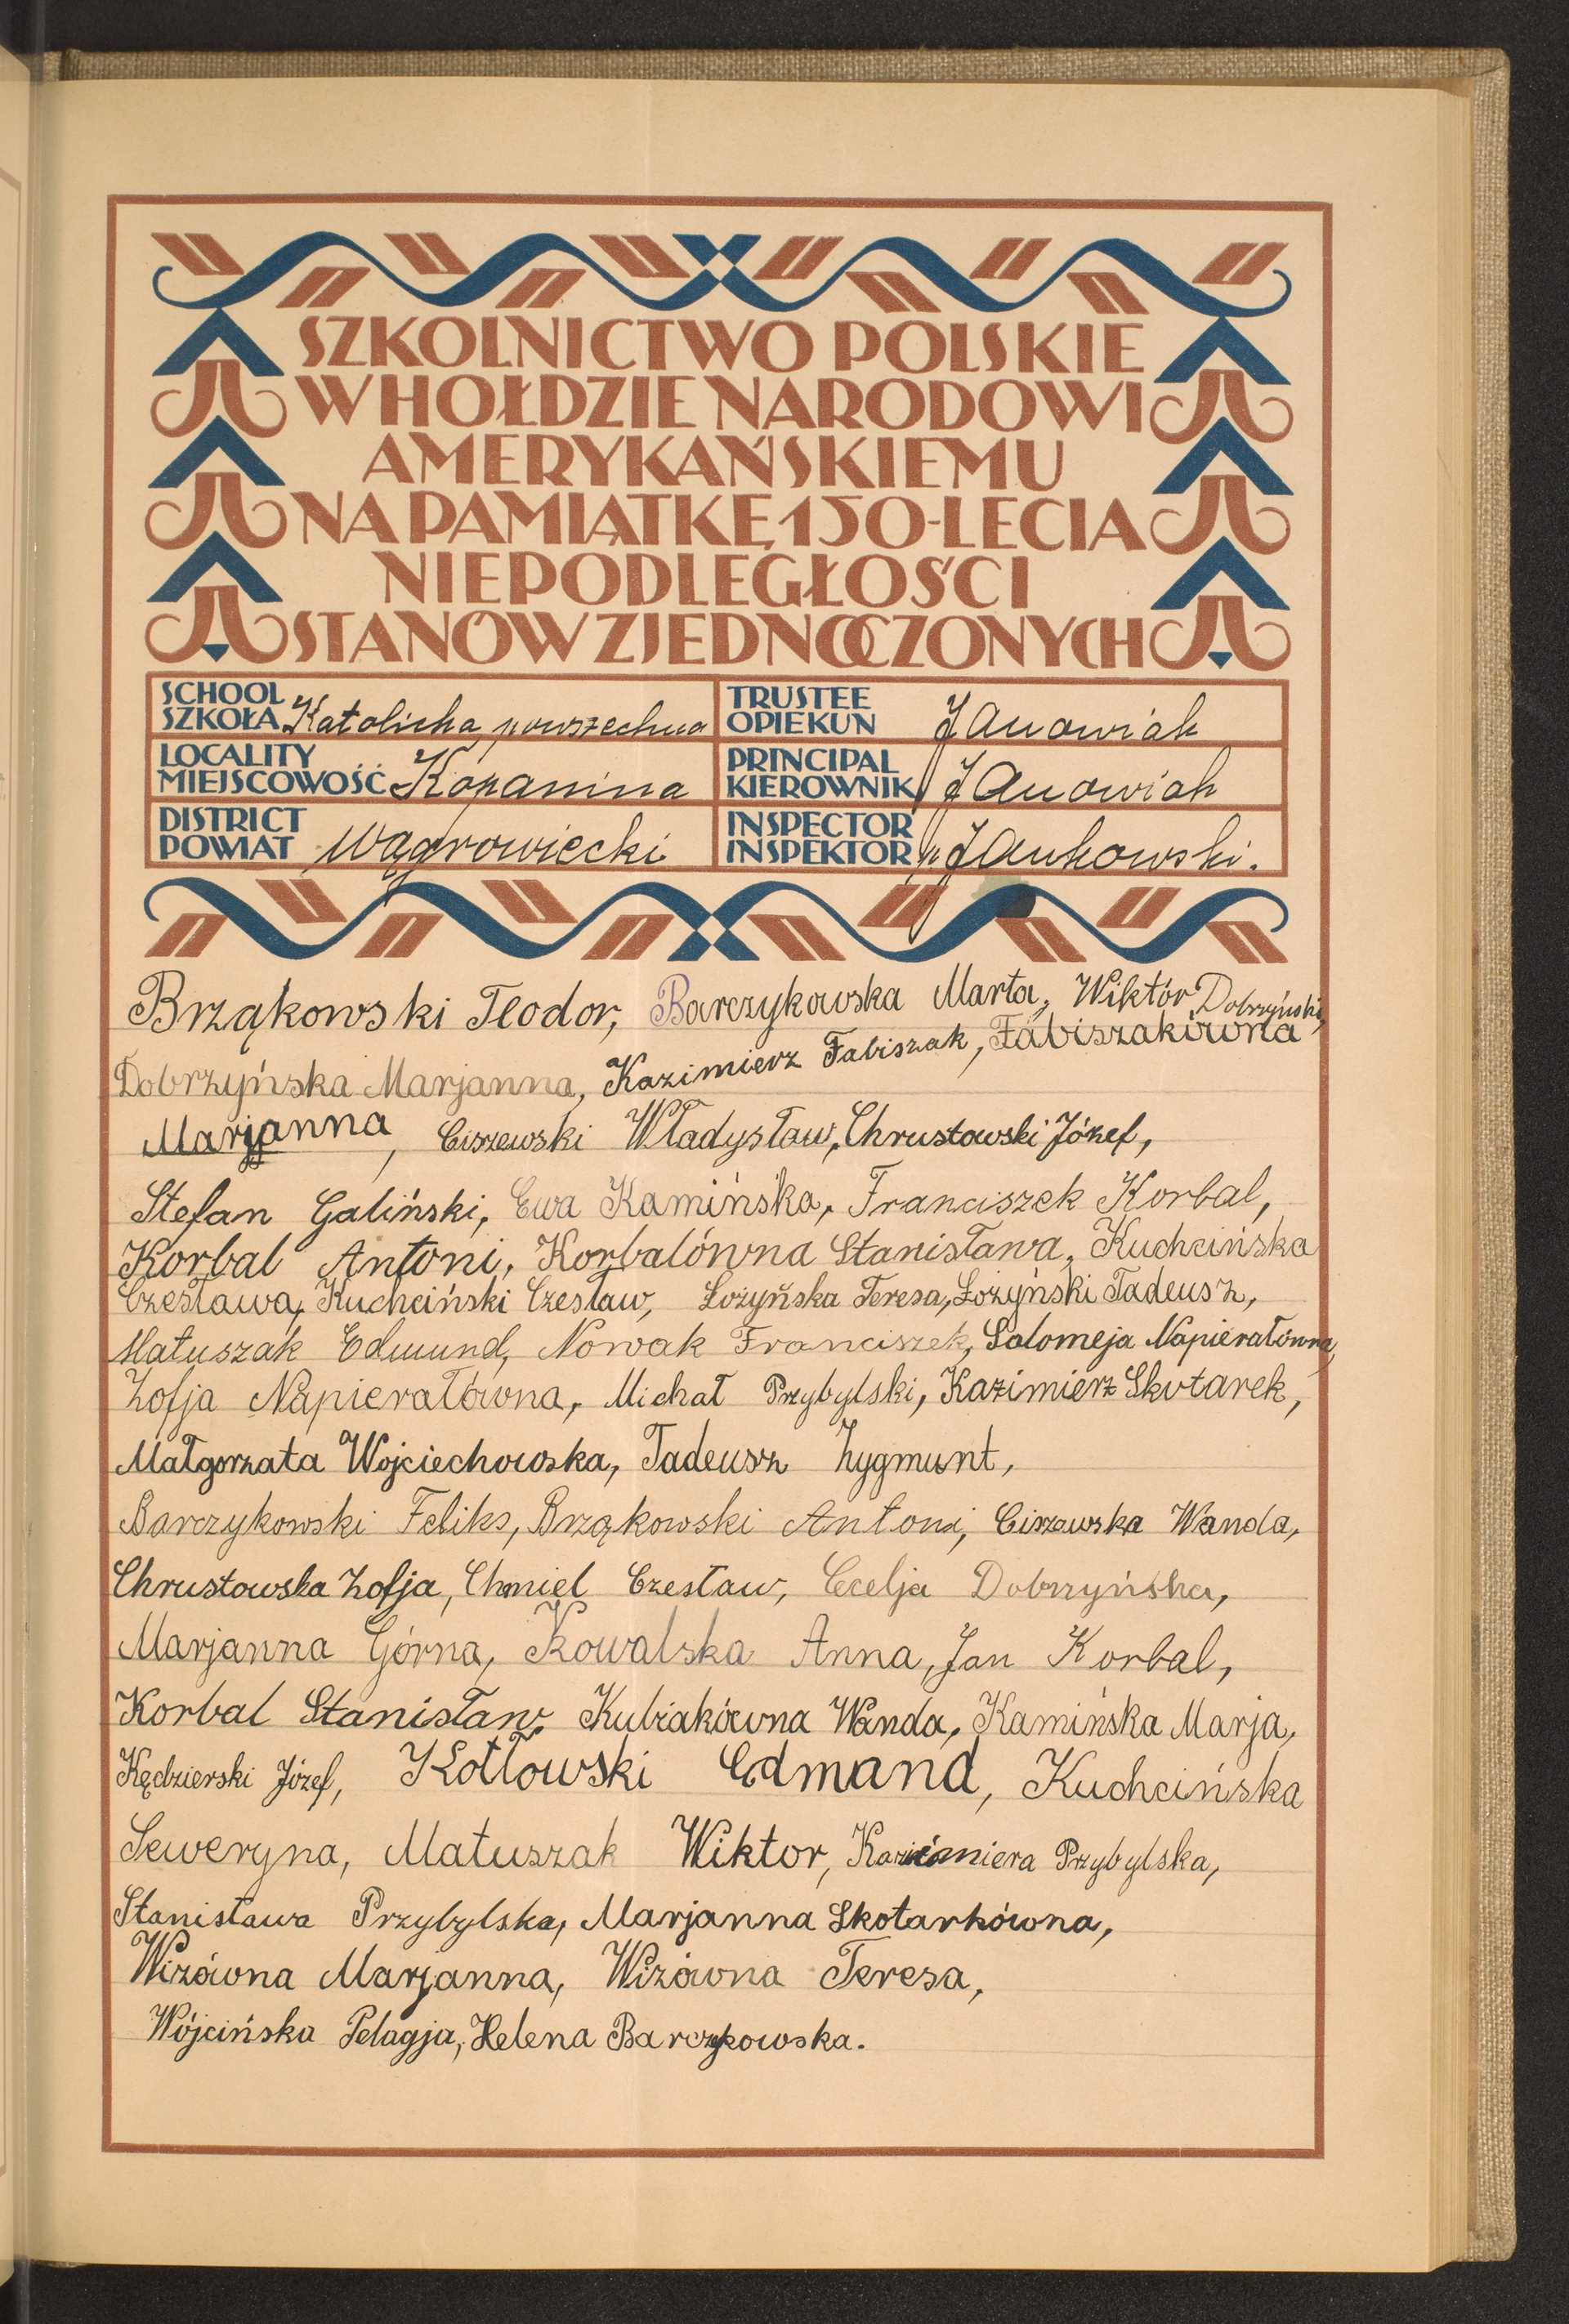 SZKOLNICTWO POLSKIE
W HOŁDZIE NARODOWI
AMERYKAŃSKIEMU
NA PAMIĄTKĘ 150-LECIA
NIEPODLEGŁOŚCI
STANÓW ZJEDNOCZONYCH
SCHOOL
SZKOŁA Katolicka powszechna
TRUSTEE
OPIEKUN Janowiak
LOCALITY
MIEJSCOWOŚĆ Kopanina
PRINCIPAL
KIEROWNIK Janowiak
DISTRICT
POWIAT Wągrowiecki
INSPECTOR
INSPEKTOR Jankowski.
Brząkowski Teodor, Barczykowska Marta, Wiktór Dobrzyński,
Dobrzyńska Marjanna, Kazimierz Fabiszak, Fabiszakówna
Marjanna, Ciszewski Władysław, Chrustowski Józef,
Stefan Galiński, Ewa Kamińska, Franciszek Korbal,
Korbal Antoni, Korbalówna Stanisława, Kuchcińska
Czesława, Kuchciński Czesław, Łożyńska Teresa, Łożyński Tadeusz,
Matuszak Edmund, Nowak Franciszek, Salomeja Napierałówna,
Zofja Napierałówna, Michał Przybylski, Kazimierz Skotarek,
Małgorzata Wojciechowska, Tadeusz Zygmunt,
Barczykowski Feliks, Brząkowski Antoni, Ciszewska Wanda,
Chrustowska Zofja, Chmiel Czesław, Cecelja Dobrzyńska,
Marjanna Górna, Kowalska Anna, Jan Korbal,
Korbal Stanisław, Kubiakówna Wanda, Kamińska Marja,
Kędzierski Józef, Kotłowski Edmand, Kuchcińska
Seweryna, Matuszak Wiktor, Kazimiera Przybylska,
Stanisława Przybylska, Marjanna Skotarkówna,
Wizówna Marjanna, Wizówna Teresa,
Wójcińska Pelagja, Helena Barczykowska.